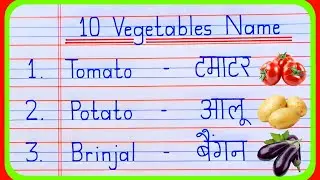 10 Vegetables Name
1. Tomato - टमाटर
2. Potato - आलू
3. Brinjal - बैंगन